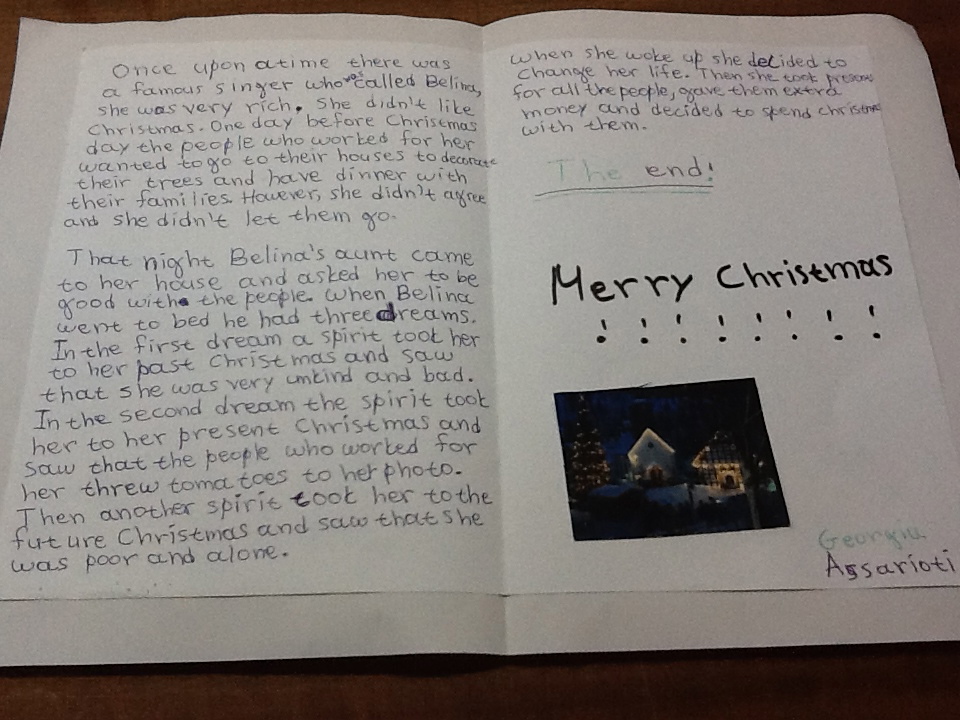 Once upon atime there was
a famous singer who was called Belina,
she was very rich. She didn't like
Christmas. One day before Christmas
day the people who worked for her
wanted to go to their houses to decorate
their trees and have dinner with
their families. However, she didn't agree
and she didn't let them go.
That night Belina's aunt came
to her house and asked her to be
good with the people. When Belina
went to bed he had three dreams.
In the first dream a spirit took her
to her past Christmas and saw
that she was very unkind and bad.
In the second dream the spirit took
her to her present Christmas and
saw that the people who worked for
her threw tomatoes to her photo.
Then another spirit took her to the
future Christmas and saw that she
was poor and alone.
When she woke up she decided to
change her life. Then she took presents
for all the people, gave them extra
money and decided to spend christmas
with them.
The end!
Merry Christmas
! ! ! ! ! ! ! !
Georgia
Assarioti